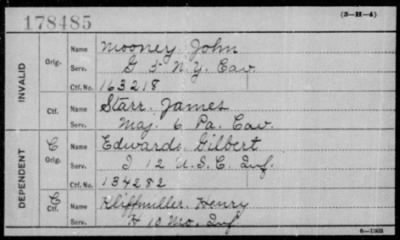 178485
(3-H-4)
INVALID
Orig.
Name Mooney John
Serv. G 5 N.Y. Cav.
Ctf.No. 163218
Ctf.
Name Starr. James
Serv. Maj. 6 Pa. Cav.
DEPENDENT
C
Orig.
Name Edwards. Gilbert
Serv. I 12 U.S.C. Inf.
Ctf.No. 134282
C
Ctf.
Name Kliffmüller. Henry
Serv. H 10 Mo. Inf
6-1303